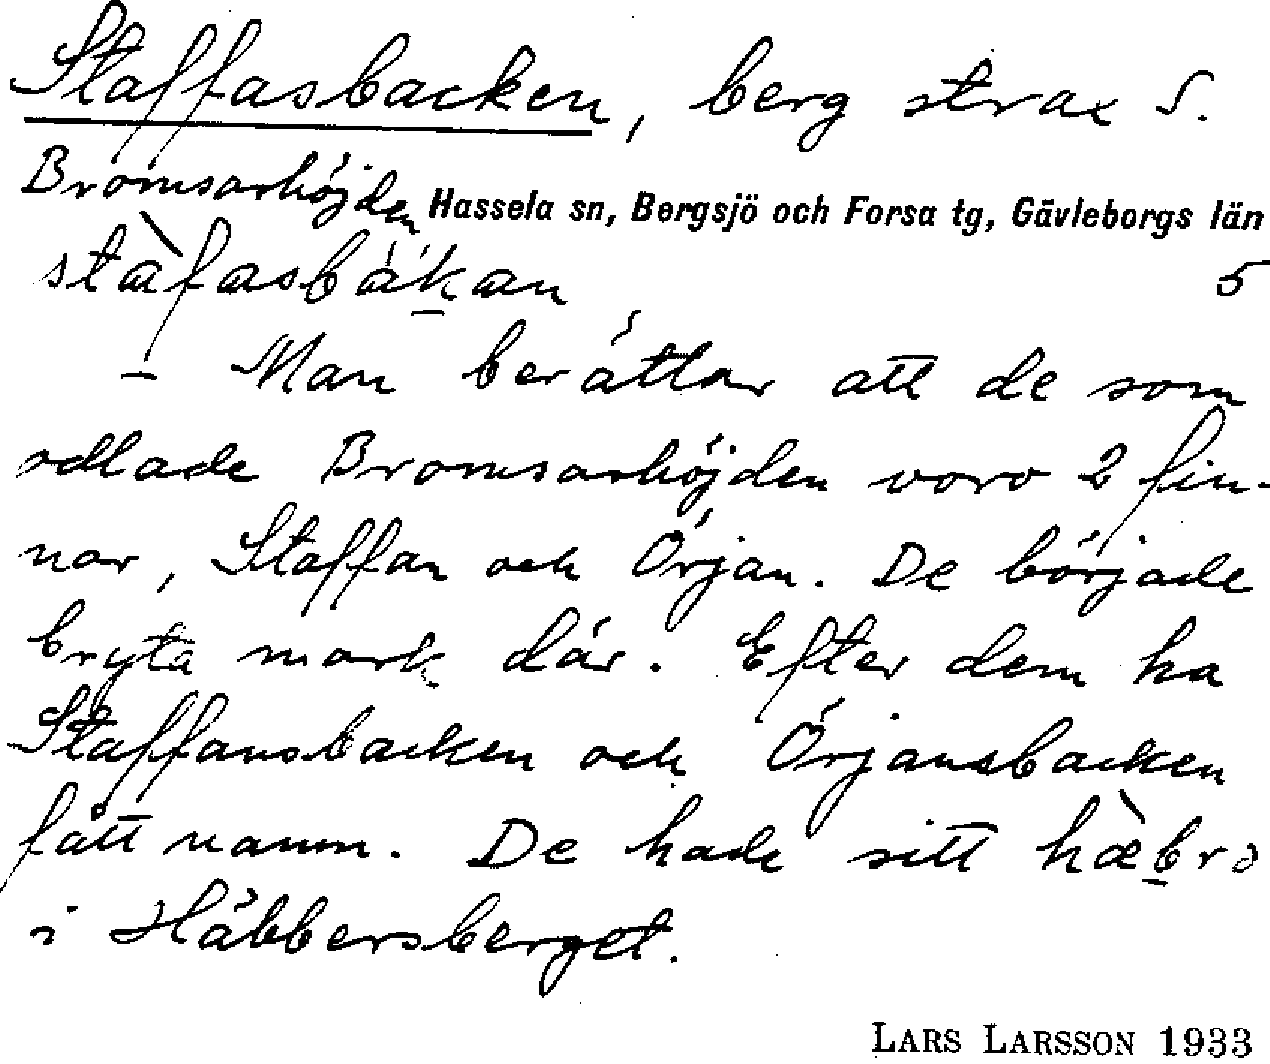 Staffasbacken, berg strax S.
Bromsarhöjden Hassela sn, Bergsjö och Forsa tg, Gävleborgs län
stàfasbákan 5
– Man berättar att de som
odlade Bromsarhöjden voro 2 fin-
nar, Staffan och Örjan. De började
bryta mark där. Efter dem ha
Staffansbacken och Örjansbacken
fått namn. De hade sitt hæ̀brə
i Häbbersberget.
LARS LARSSON 1933